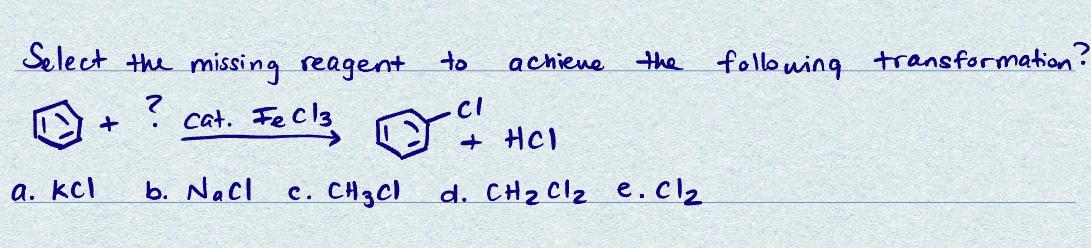 Select the missing reagent to achieve the following transformation?
+ ? cat. FeCl3 Cl + HCl
a. KCl b. NaCl c. CH3Cl d. CH2Cl2 e. Cl2